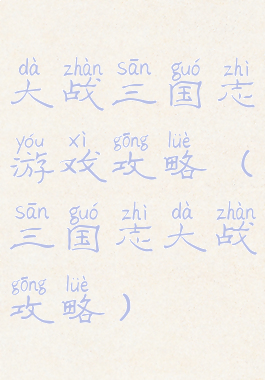 dà zhàn sān guó zhì
大战三国志
yóu xì gōng lüè
游戏攻略（
sān guó zhì dà zhàn
三国志大战
gōng lüè
攻略）